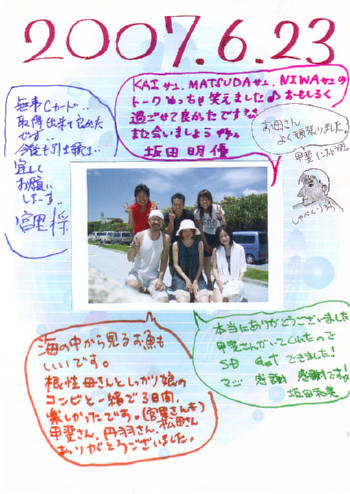 2007.6.23
KAIサン、MATSUDAサン、NIWAサンの
トークめっちゃ笑えました♪おもしろく
過ごせて良かったですな
また会いましょうやぁ。
坂田明優
無事Cカード..
取得出来て良かった
です..
今後も引き続き..
宜しく
お願い
しまーす..
宮里 将.
お母さん
よく頑張りました。
甲斐インストラクター
海の中から見るお魚も
いいです。
根性母さんとしっかり娘の
コンビと一緒で3日間、
楽しかったです。(宮里さんも)
甲斐さん、丹羽さん、松田さん
ありがとうございました。
本当にありがとうございました
甲斐さんがいてくれたので
SD Get できました!
マジ 感謝 感謝です!